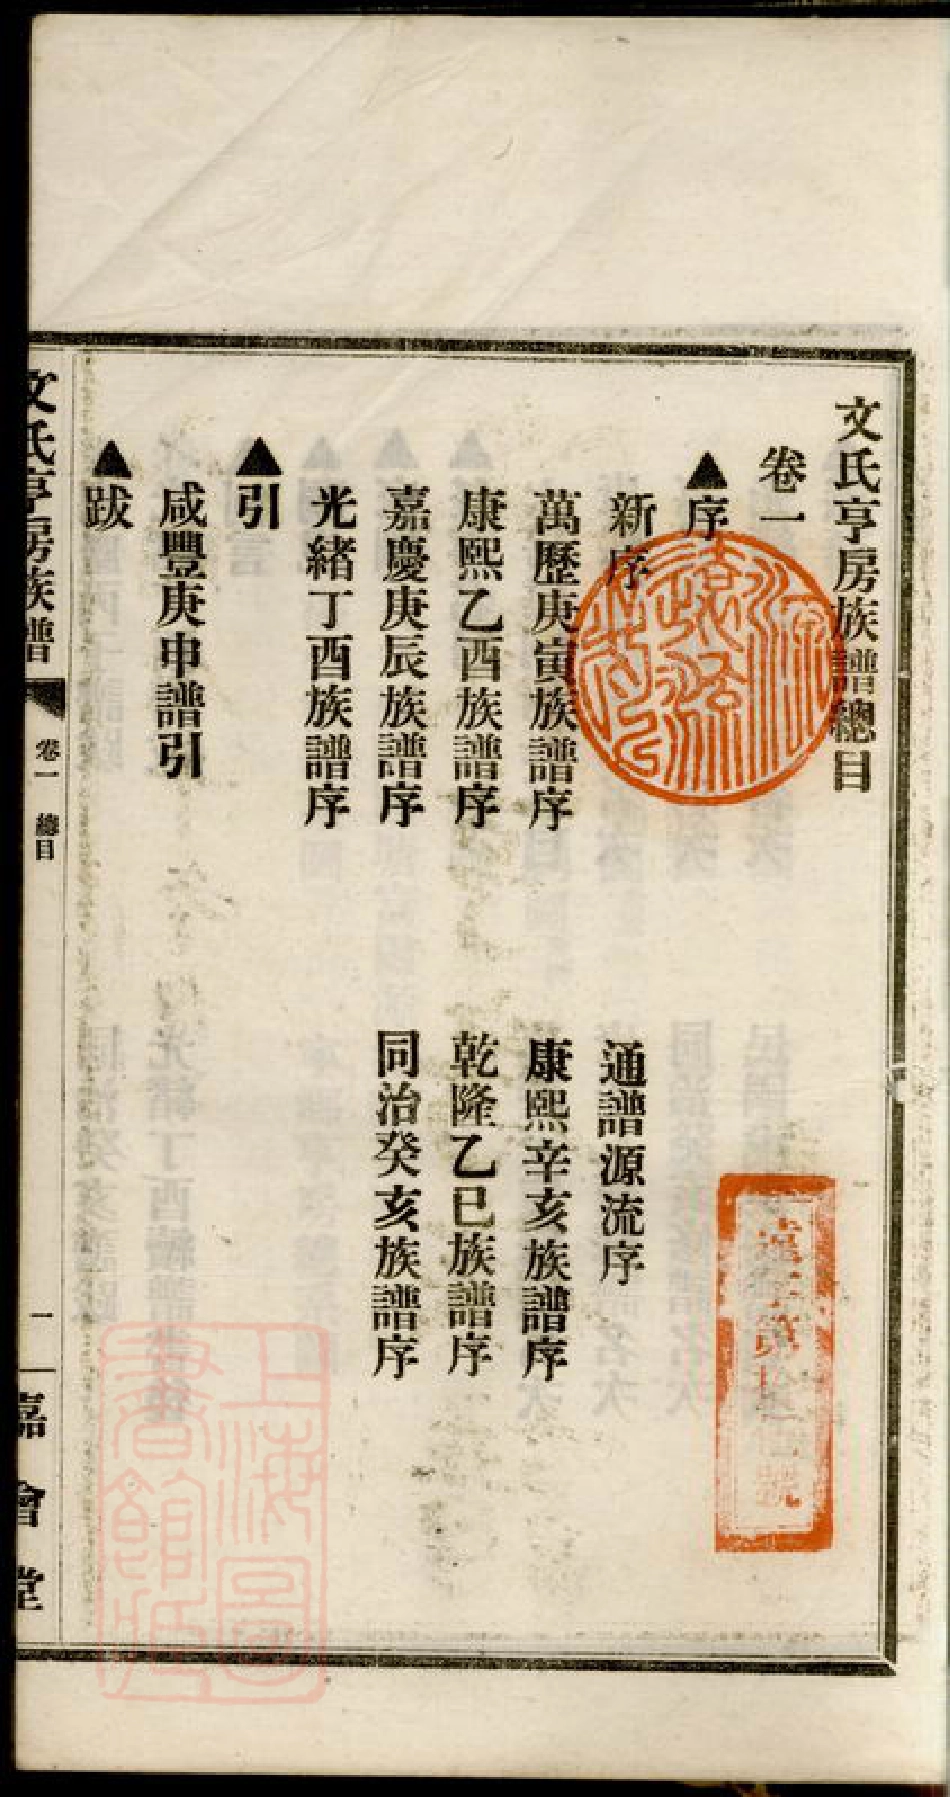 文氏亨房族譜總目
卷一
▲序
新序
通譜源流序
萬歷庚寅族譜序
康熙辛亥族譜序
康熙乙酉族譜序
乾隆乙巳族譜序
嘉慶庚辰族譜序
同治癸亥族譜序
光緒丁酉族譜序
▲引
咸豐庚申譜引
▲跋
文氏亨房族譜
卷一 總目
一
嘉會堂
上海圖書館藏